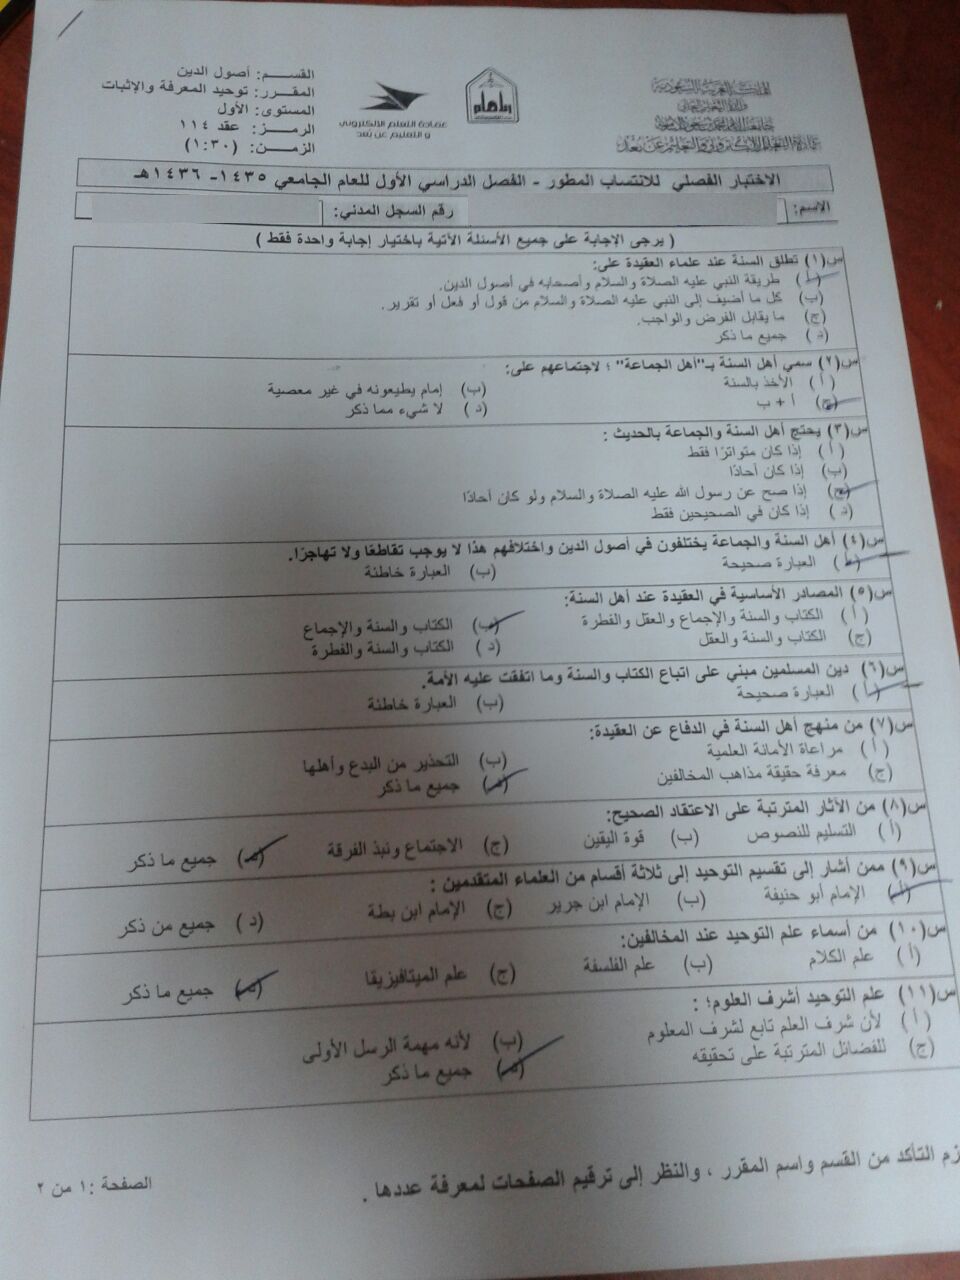 المملكة العربية السعودية
وزارة التعليم العالي
جامعة الإمام محمد بن سعود الإسلامية
عمادة التعلم الإلكتروني والتعليم عن بعد
عمادة التعلم الإلكتروني
والتعليم عن بعد
القســم: أصول الدين
المقرر: توحيد المعرفة والإثبات
المستوى: الأول
الرمز: عقد ١١٤
الزمن: (١:٣٠)
الاختبار الفصلي للانتساب المطور - الفصل الدراسي الأول للعام الجامعي ١٤٣٥- ١٤٣٦هـ
الاسم: رقم السجل المدني:
( يرجى الإجابة على جميع الأسئلة الآتية باختيار إجابة واحدة فقط )
س(١) تطلق السنة عند علماء العقيدة على:
(أ) طريقة النبي عليه الصلاة والسلام وأصحابه في أصول الدين.
(ب) كل ما أضيف إلى النبي عليه الصلاة والسلام من قول أو فعل أو تقرير.
(ج) ما يقابل الفرض والواجب.
(د) جميع ما ذكر
س(٢) سمي أهل السنة بـ"أهل الجماعة" ؛ لاجتماعهم على:
(أ) الأخذ بالسنة (ب) إمام يطيعونه في غير معصية
(ج) أ + ب (د) لا شيء مما ذكر
س(٣) يحتج أهل السنة والجماعة بالحديث :
(أ) إذا كان متواترًا فقط
(ب) إذا كان أحادًا
(ج) إذا صح عن رسول الله عليه الصلاة والسلام ولو كان أحادًا
(د) إذا كان في الصحيحين فقط
س(٤) أهل السنة والجماعة يختلفون في أصول الدين واختلافهم هذا لا يوجب تقاطعًا ولا تهاجرًا.
(أ) العبارة صحيحة (ب) العبارة خاطئة
س(٥) المصادر الأساسية في العقيدة عند أهل السنة:
(أ) الكتاب والسنة والإجماع والعقل والفطرة (ب) الكتاب والسنة والإجماع
(ج) الكتاب والسنة والعقل (د) الكتاب والسنة والفطرة
س(٦) دين المسلمين مبني على اتباع الكتاب والسنة وما اتفقت عليه الأمة.
(أ) العبارة صحيحة (ب) العبارة خاطئة
س(٧) من منهج أهل السنة في الدفاع عن العقيدة:
(أ) مراعاة الأمانة العلمية (ب) التحذير من البدع وأهلها
(ج) معرفة حقيقة مذاهب المخالفين (د) جميع ما ذكر
س(٨) من الآثار المترتبة على الاعتقاد الصحيح:
(أ) التسليم للنصوص (ب) قوة اليقين (ج) الاجتماع ونبذ الفرقة (د) جميع ما ذكر
س(٩) ممن أشار إلى تقسيم التوحيد إلى ثلاثة أقسام من العلماء المتقدمين :
(أ) الإمام أبو حنيفة (ب) الإمام ابن جرير (ج) الإمام ابن بطة (د) جميع من ذكر
س(١٠) من أسماء علم التوحيد عند المخالفين:
(أ) علم الكلام (ب) علم الفلسفة (ج) علم الميتافيزيقا (د) جميع ما ذكر
س(١١) علم التوحيد أشرف العلوم؛ :
(أ) لأن شرف العلم تابع لشرف المعلوم (ب) لأنه مهمة الرسل الأولى
(ج) للفضائل المترتبة على تحقيقه (د) جميع ما ذكر
التأكد من القسم واسم المقرر ، والنظر إلى ترقيم الصفحات لمعرفة عددها .
الصفحة :١ من ٢